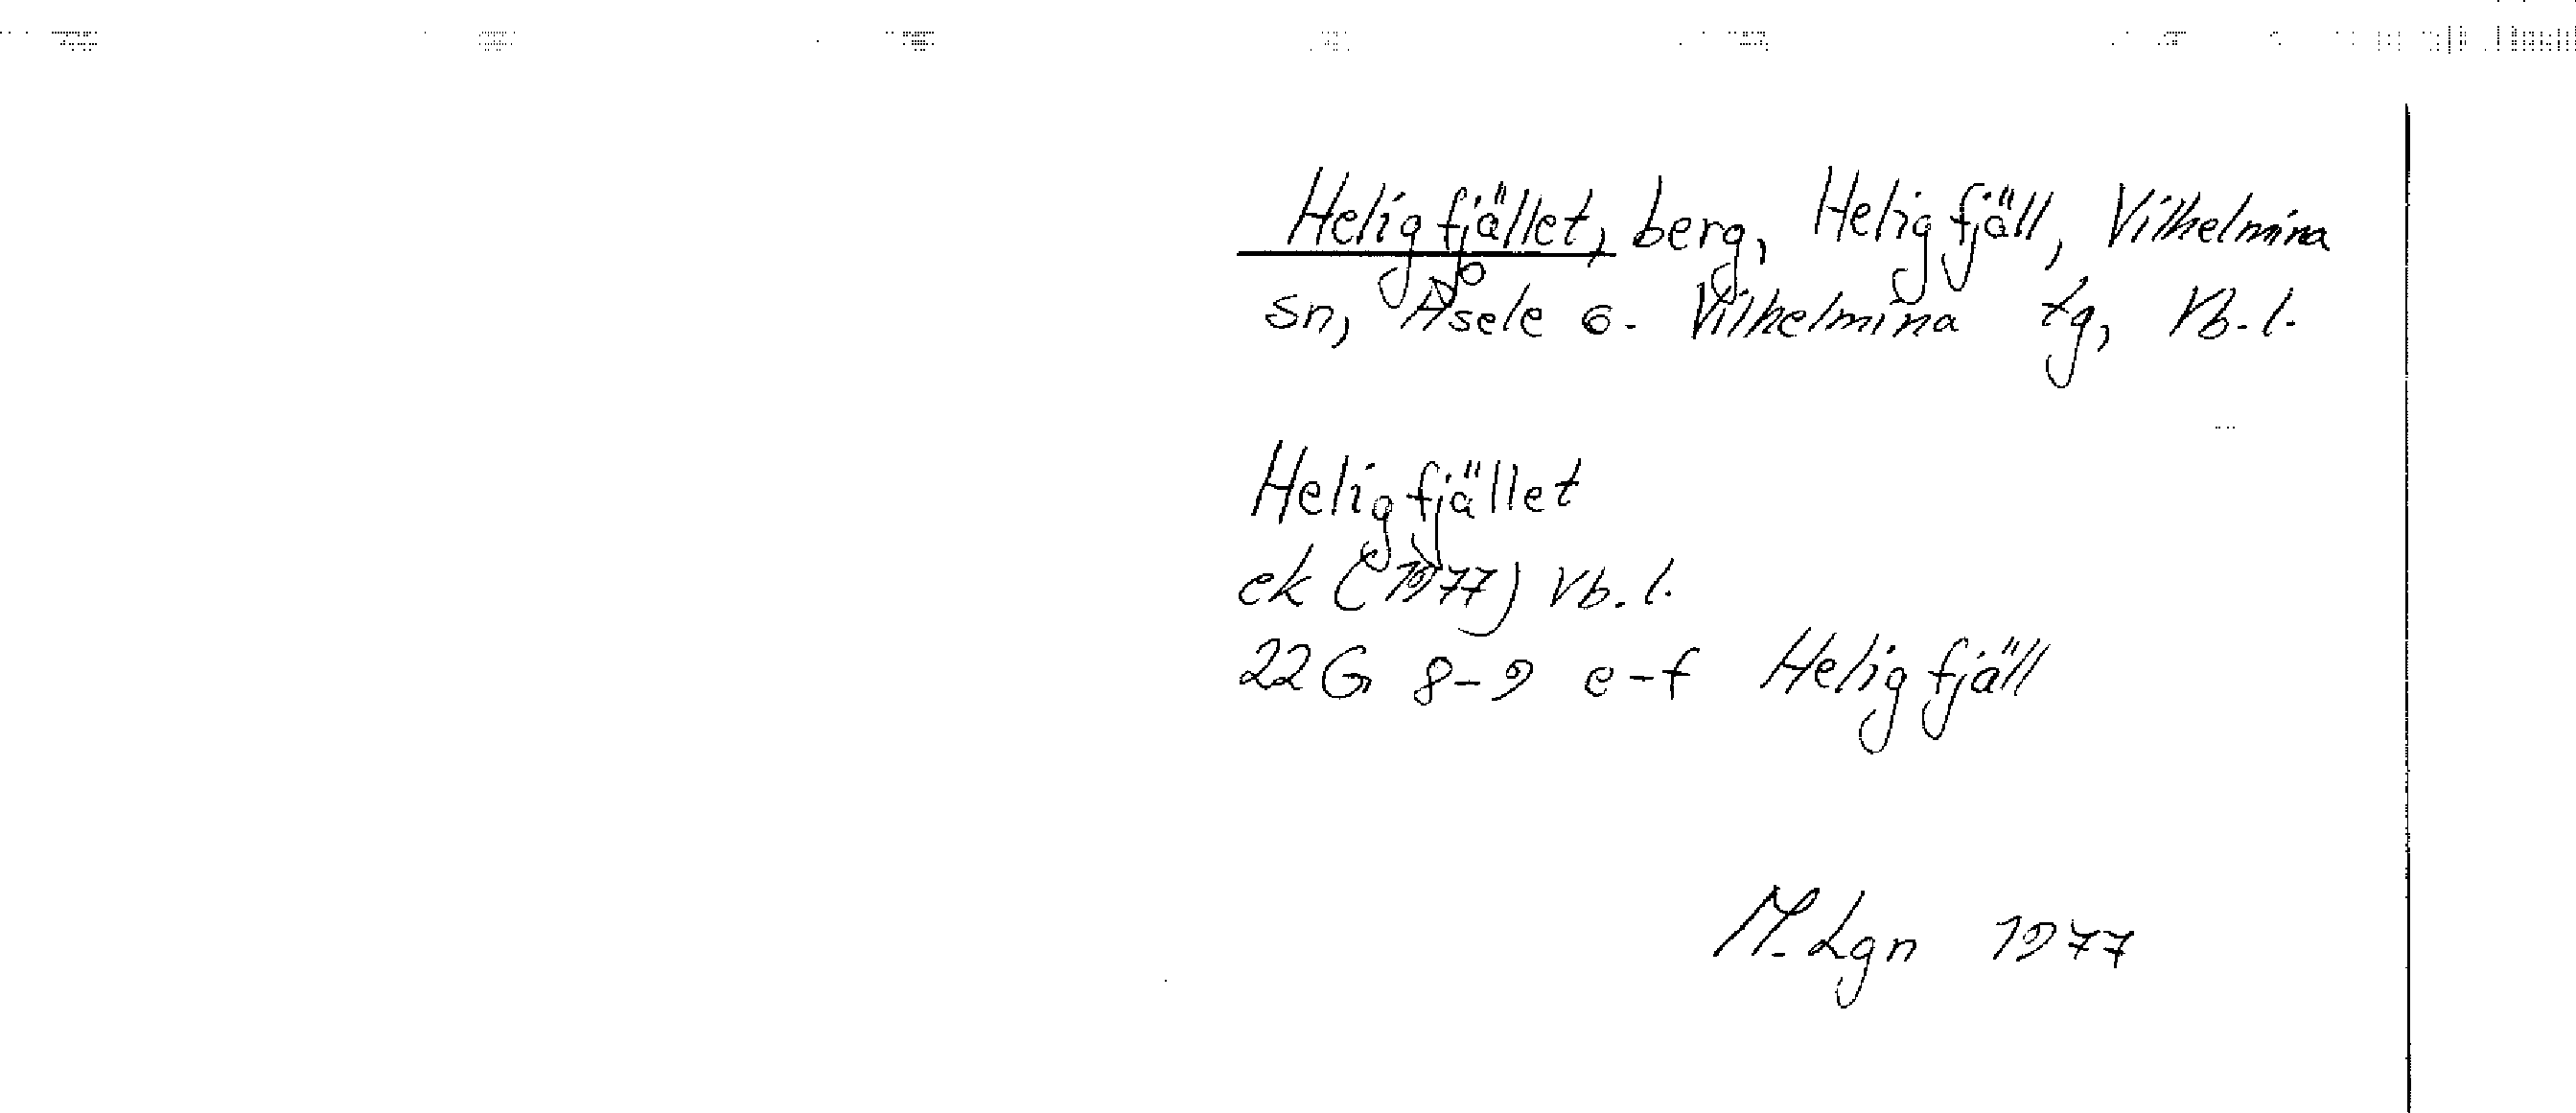 Heligfjället, berg, Heligfjäll, Vilhelmina
sn, Åsele o. Vilhelmina tg, Vb. l.
Heligfjället
ek (1977) Vb. l.
22G 8-9 e-f Heligfjäll
M. Lgn 1977